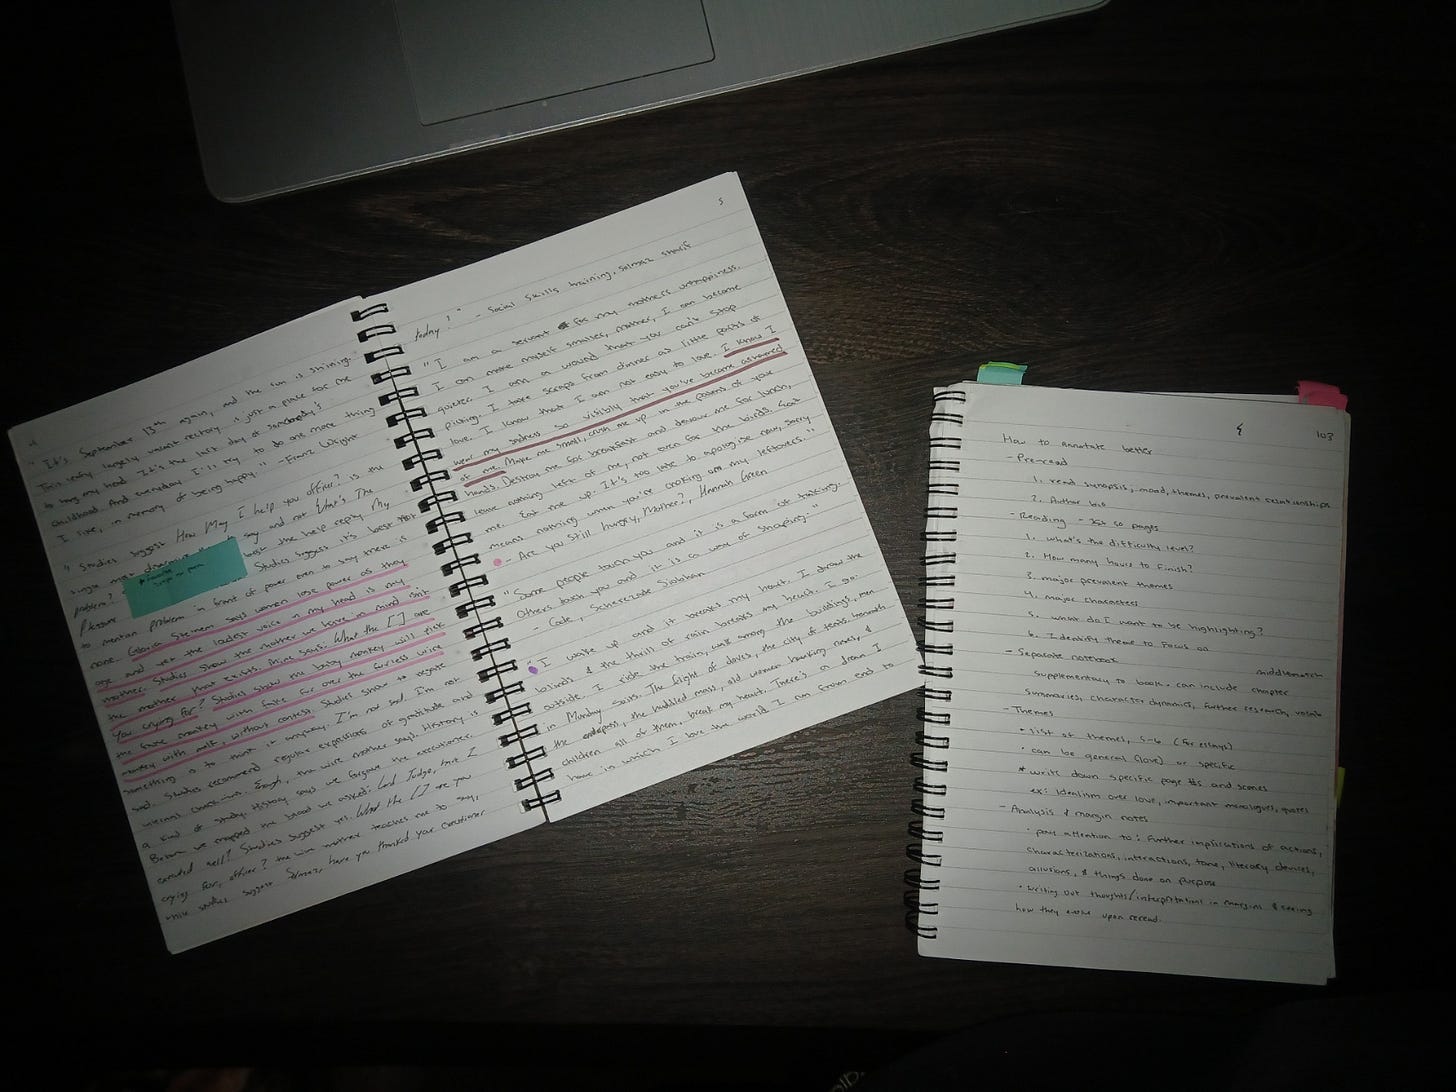 4
"It's September 13th again, and the sun is shining.
This leafy largely vacant rectory is just a place for me
to hang my head. It's the last day of somebody's
childhood. And everyday I'll try to do one more thing
I like, in memory of being happy." -Franz Wright
"Studies suggest How May I help you officer? is the
single most disarming to say and not What's The
problem? best the help reply My
Pleasure Studies suggest it's best not
to mention problem in front of power even to say there is
none. Gloria Steinem says women lose power as they
age and yet the loudest voice in my head is my
mother. Studies show the mother we have in mind isn't
the mother that exists. Mine says: What the [ ] are
you crying for? Studies show the baby monkey will pick
the fake monkey with fake fur over the furless wire
monkey with milk, without contest. Studies show to negate
something is to think it anyway. I'm not sad. I'm not
sad. Studies recommend regular expressions of gratitude and
internal check-ins. Enough, the wire mother says. History is
a kind of study. History says we forgave the executioner.
Before we mopped the blood we asked: Lord Judge, have I
executed well? Studies suggest yes. What the [ ] are you
crying for, officer? the wire mother teaches me to say,
while studies suggest Solmaz, have you thanked your executioner
5
today?" - Social Skills training, Solmaz Sharif
"I am a servant for my mother's unhappiness.
I can make myself smaller, mother, I can become
quieter. I am a wound that you can't stop
picking. I tore scraps from dinner as little parts of
love. I know that I am not easy to love. I know I
wear my sadness so visibly that you've become ashamed
of me. Make me small, crush me up in the palms of your
hands. Destroy me for breakfast and devour me for lunch,
leave nothing left of me, not even for the birds. Eat
me. Eat me up. It's too late to apologise now, sorry
means nothing when you're choking on my leftovers."
- Are you Still Hungry, Mother?, Hannah Green
"Some people touch you and it is a form of taking.
Others touch you and it is a way of shaping."
- Code, Scherezade Siobhan
"I wake up and it breaks my heart. I draw the
blinds & the thrill of rain breaks my heart. I go
outside. I ride the train, walk among the buildings, men
in Monday suits. The flight of doves, the city of tents beneath
the underpass, the huddled mass, old women hawking roses, &
children all of them, break my heart. There's a dream I
have in which I love the world. I run from end to
103
How to annotate better
- Pre-read
1. read synopsis, mood, themes, prevalent relationships
2. Author bio
- Reading - 1st 50 pages
1. What's the difficulty level?
2. How many hours to finish?
3. major prevalent themes
4. major characters
5. what do I want to be highlighting?
6. Identify theme to focus on
- Separate notebook middlemarch
supplementary to book. can include chapter
summaries, character dynamics, further research, vocab
- Themes
• list of themes, 5-6 (for essays)
• can be general (love) or specific
* write down specific page #s and scenes
ex: Idealism over love, important monologues, quotes
- Analysis & margin notes
• pay attention to: further implications of actions,
characterizations, interactions, tone, literary devices,
allusions, & things done on purpose
• writing out thoughts/interpretations in margins & seeing
how they evolve upon reread.